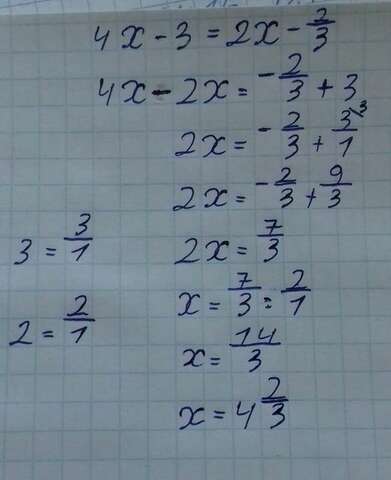 4x - 3 = 2x - 2/3
4x - 2x = -2/3 + 3
2x = -2/3 + 3/1 \3
2x = -2/3 + 9/3
3 = 3/1
2x = 7/3
x = 7/3 : 2/1
2 = 2/1
x = 14/3
x = 4 2/3